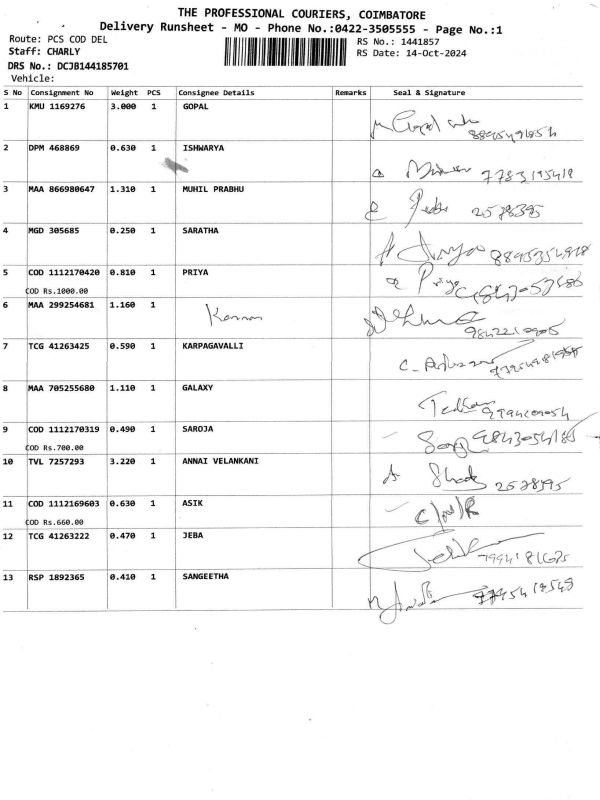 THE PROFESSIONAL COURIERS, COIMBATORE
Delivery Runsheet - MO - Phone No.:0422-3505555 - Page No.:1
Route: PCS COD DEL
RS No.: 1441857
Staff: CHARLY
RS Date: 14-Oct-2024
DRS No.: DCJB144185701
Vehicle:
S No Consignment No Weight PCS Consignee Details Remarks Seal & Signature
1 KMU 1169276 3.000 1 GOPAL
2 DPM 468869 0.630 1 ISHWARYA
3 MAA 866980647 1.310 1 MUHIL PRABHU
2578395
4 MGD 305685 0.250 1 SARATHA
5 COD 1112170420 0.810 1 PRIYA
COD Rs.1000.00
6 MAA 299254681 1.160 1 Kannan
7 TCG 41263425 0.590 1 KARPAGAVALLI
8 MAA 705255680 1.110 1 GALAXY
9 COD 1112170319 0.490 1 SAROJA
COD Rs.700.00
10 TVL 7257293 3.220 1 ANNAI VELANKANI
2578395
11 COD 1112169603 0.630 1 ASIK
COD Rs.660.00
12 TCG 41263222 0.470 1 JEBA
13 RSP 1892365 0.410 1 SANGEETHA